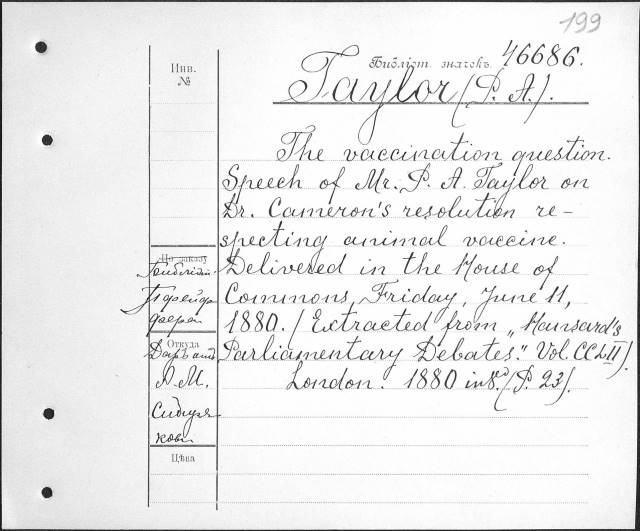 199
Библіот. значекъ. 46686.
Инв.
№
Taylor (P. A.).
The vaccination question.
Speech of Mr. P. A. Taylor on
Dr. Cameron's resolution re-
specting animal vaccine.
Delivered in the House of
Commons, Friday, June 11,
1880. / Extracted from „Hansard's
Parliamentary Debates." Vol. CCLII).
London. 1880 in 8º. (P. 23).
По заказу
Откуда
А. М.
Цѣна